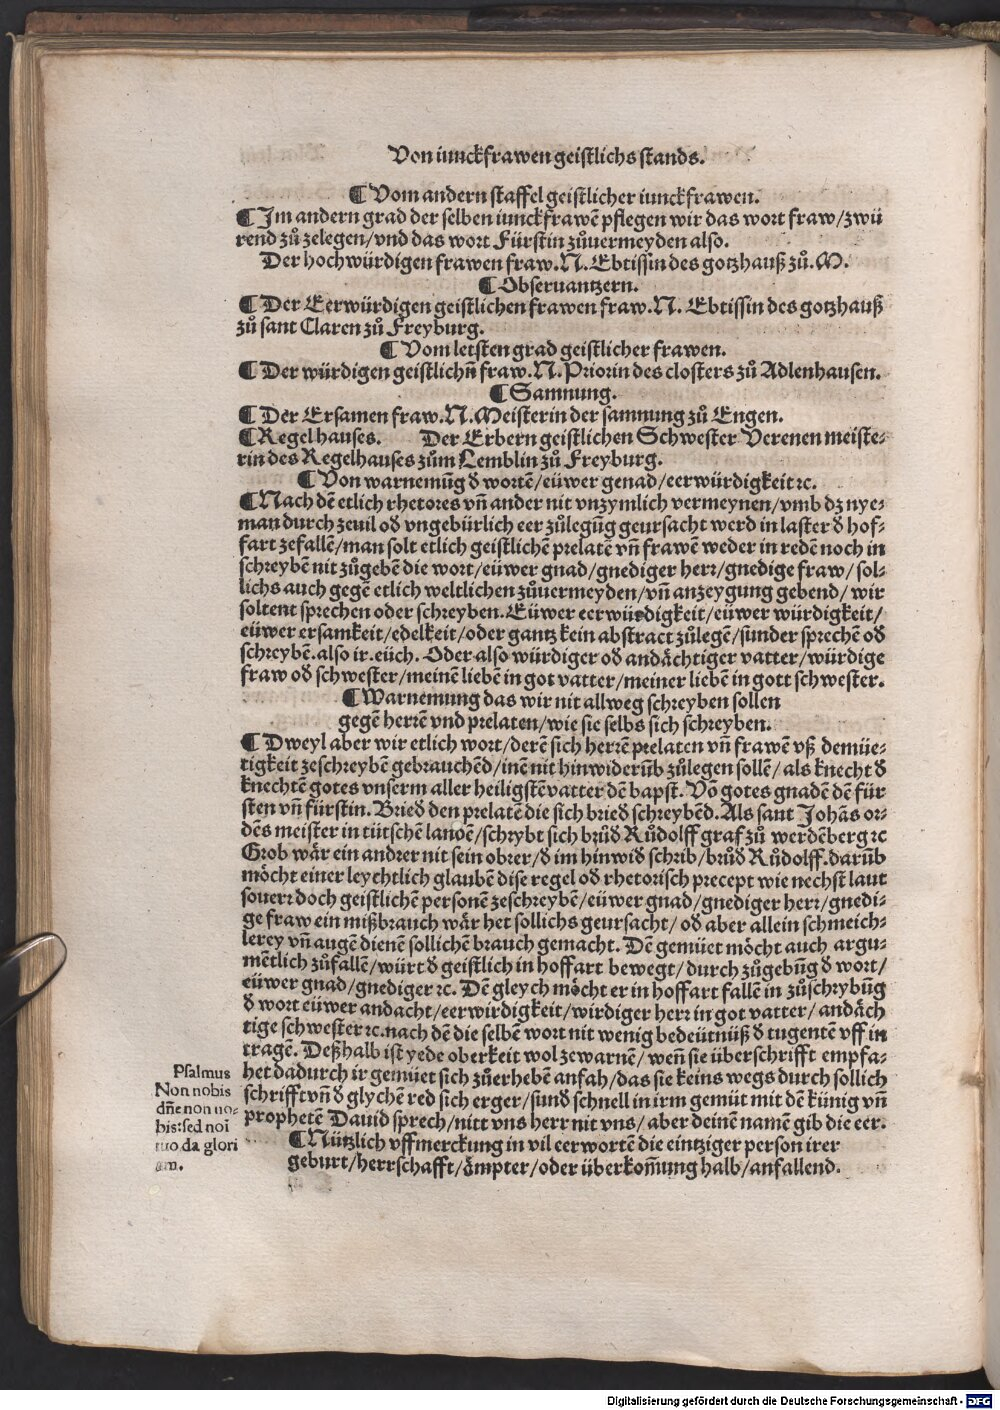 Von iunckfrawen geistlichs stands.
¶ Vom andern staffel geistlicher iunckfrawen.
¶ Im andern grad der selben iunckfrawẽ pflegen wir das wort fraw/zwü
rend zů zelegen/vnd das wort Fürstin zůuermeyden also.
Der hochwürdigen frawen fraw. N. Ebtissin des gotzhauß zů. M.
¶ Obseruantzern.
¶ Der Eerwürdigen geistlichen frawen fraw. N. Ebtissin des gotzhauß
zů sant Claren zů Freyburg.
¶ Vom letsten grad geistlicher frawen.
¶ Der würdigen geistlichñ fraw. N. Priorin des closters zů Adlenhausen.
¶ Samnung.
¶ Der Ersamen fraw. N. Meisterin der samnung zů Engen.
¶ Regelhauses. Der Erbern geistlichen Schwester Verenen meiste⸗
rin des Regelhauses zům Lemblin zů Freyburg.
¶ Von warnemũg đ wortẽ/eüwer genad/eerwürdigkeit ⁊c.
¶ Nach dẽ etlich rhetores vñ ander nit vnzymlich vermeynen/vmb dz nye⸗
man durch zeuil ođ vngebürlich eer zůlegũg geursacht werd in laster đ hof⸗
fart zefallẽ/man solt etlich geistlichẽ prelatẽ vñ frawẽ weder in redẽ noch in
schreybẽ nit zůgebẽ die wort/eüwer gnad/gnediger herr/gnedige fraw/sol⸗
lichs auch gegẽ etlich weltlichen zůuermeyden/vñ anzeygung gebend/wir
soltent sprechen oder schreyben. Eüwer eerwürdigkeit/eüwer würdigkeit/
eüwer ersamkeit/edelkeit/oder gantz kein abstract zůlegẽ/sunder sprechẽ ođ
schreybẽ. also ir. eüch. Oder also würdiger ođ andächtiger vatter/würdige
fraw ođ schwester/meinẽ liebẽ in got vatter/meiner liebẽ in gott schwester.
¶ Warnemung das wir nit allweg schreyben sollen
gegẽ herrẽ vnd prelaten/wie sie selbs sich schreyben.
¶ Dweyl aber wir etlich wort/derẽ sich herrẽ prelaten vñ frawẽ vß demüe⸗
tigkeit zeschreybẽ gebrauchẽd/inẽ nit hinwiderũb zůlegen sollẽ/als knecht đ
knechtẽ gotes vnserm aller heiligstẽ vatter dẽ bapst. Võ gotes gnadẽ dẽ für
sten vñ fürstin. Brieđ den prelatẽ die sich brieđ schreybẽd. Als sant Johãs or⸗
dẽs meister in tütschẽ landẽ/schrybt sich brůđ Růdolff graf zů werdẽberg ⁊c
Grob wär ein andrer nit sein obrer/đ im hinwiđ schrib/brůđ Růdolff. darũb
möcht einer leychtlich glaubẽ dise regel ođ rhetorisch precept wie nechst laut
souerr doch geistlichẽ personẽ zeschreybẽ/eüwer gnad/gnediger herr/gnedi⸗
ge fraw ein mißbrauch wär het sollichs geursacht/ođ aber allein schmeich⸗
lerey vñ augẽ dienẽ sollichẽ brauch gemacht. Dẽ gemüet möcht auch argu⸗
mẽtlich zůfallẽ/würt đ geistlich in hoffart bewegt/durch zůgebũg đ wort/
eüwer gnad/gnediger ⁊c. Dẽ gleych möcht er in hoffart fallẽ in zůschrybũg
đ wort eüwer andacht/eerwirdigkeit/wirdiger herr in got vatter/andäch
tige schwester ⁊c. nach dẽ die selbẽ wort nit wenig bedeütnüß đ tugentẽ vff in
tragẽ. Deßhalb ist yede oberkeit wol zewarnẽ/weñ sie überschrifft empfa⸗
het dadurch ir gemüet sich zůerhebẽ anfah/das sie keins wegs durch sollich
schrifft vñ đ glychẽ red sich erger/sunđ schnell in irm gemüt mit dẽ künig vñ
prophetẽ Dauid sprech/nitt vns herr nit vns/aber deinẽ namẽ gib die eer.
Psalmus
Non nobis
dñe non no⸗
bis: sed noĩ
tuo da glori
am.
¶ Nützlich vffmerckung in vil eerwortẽ die eintziger person irer
geburt/herrschafft/ämpter/oder überkom̃ung halb/anfallend.
Digitalisierung gefördert durch die Deutsche Forschungsgemeinschaft - DFG